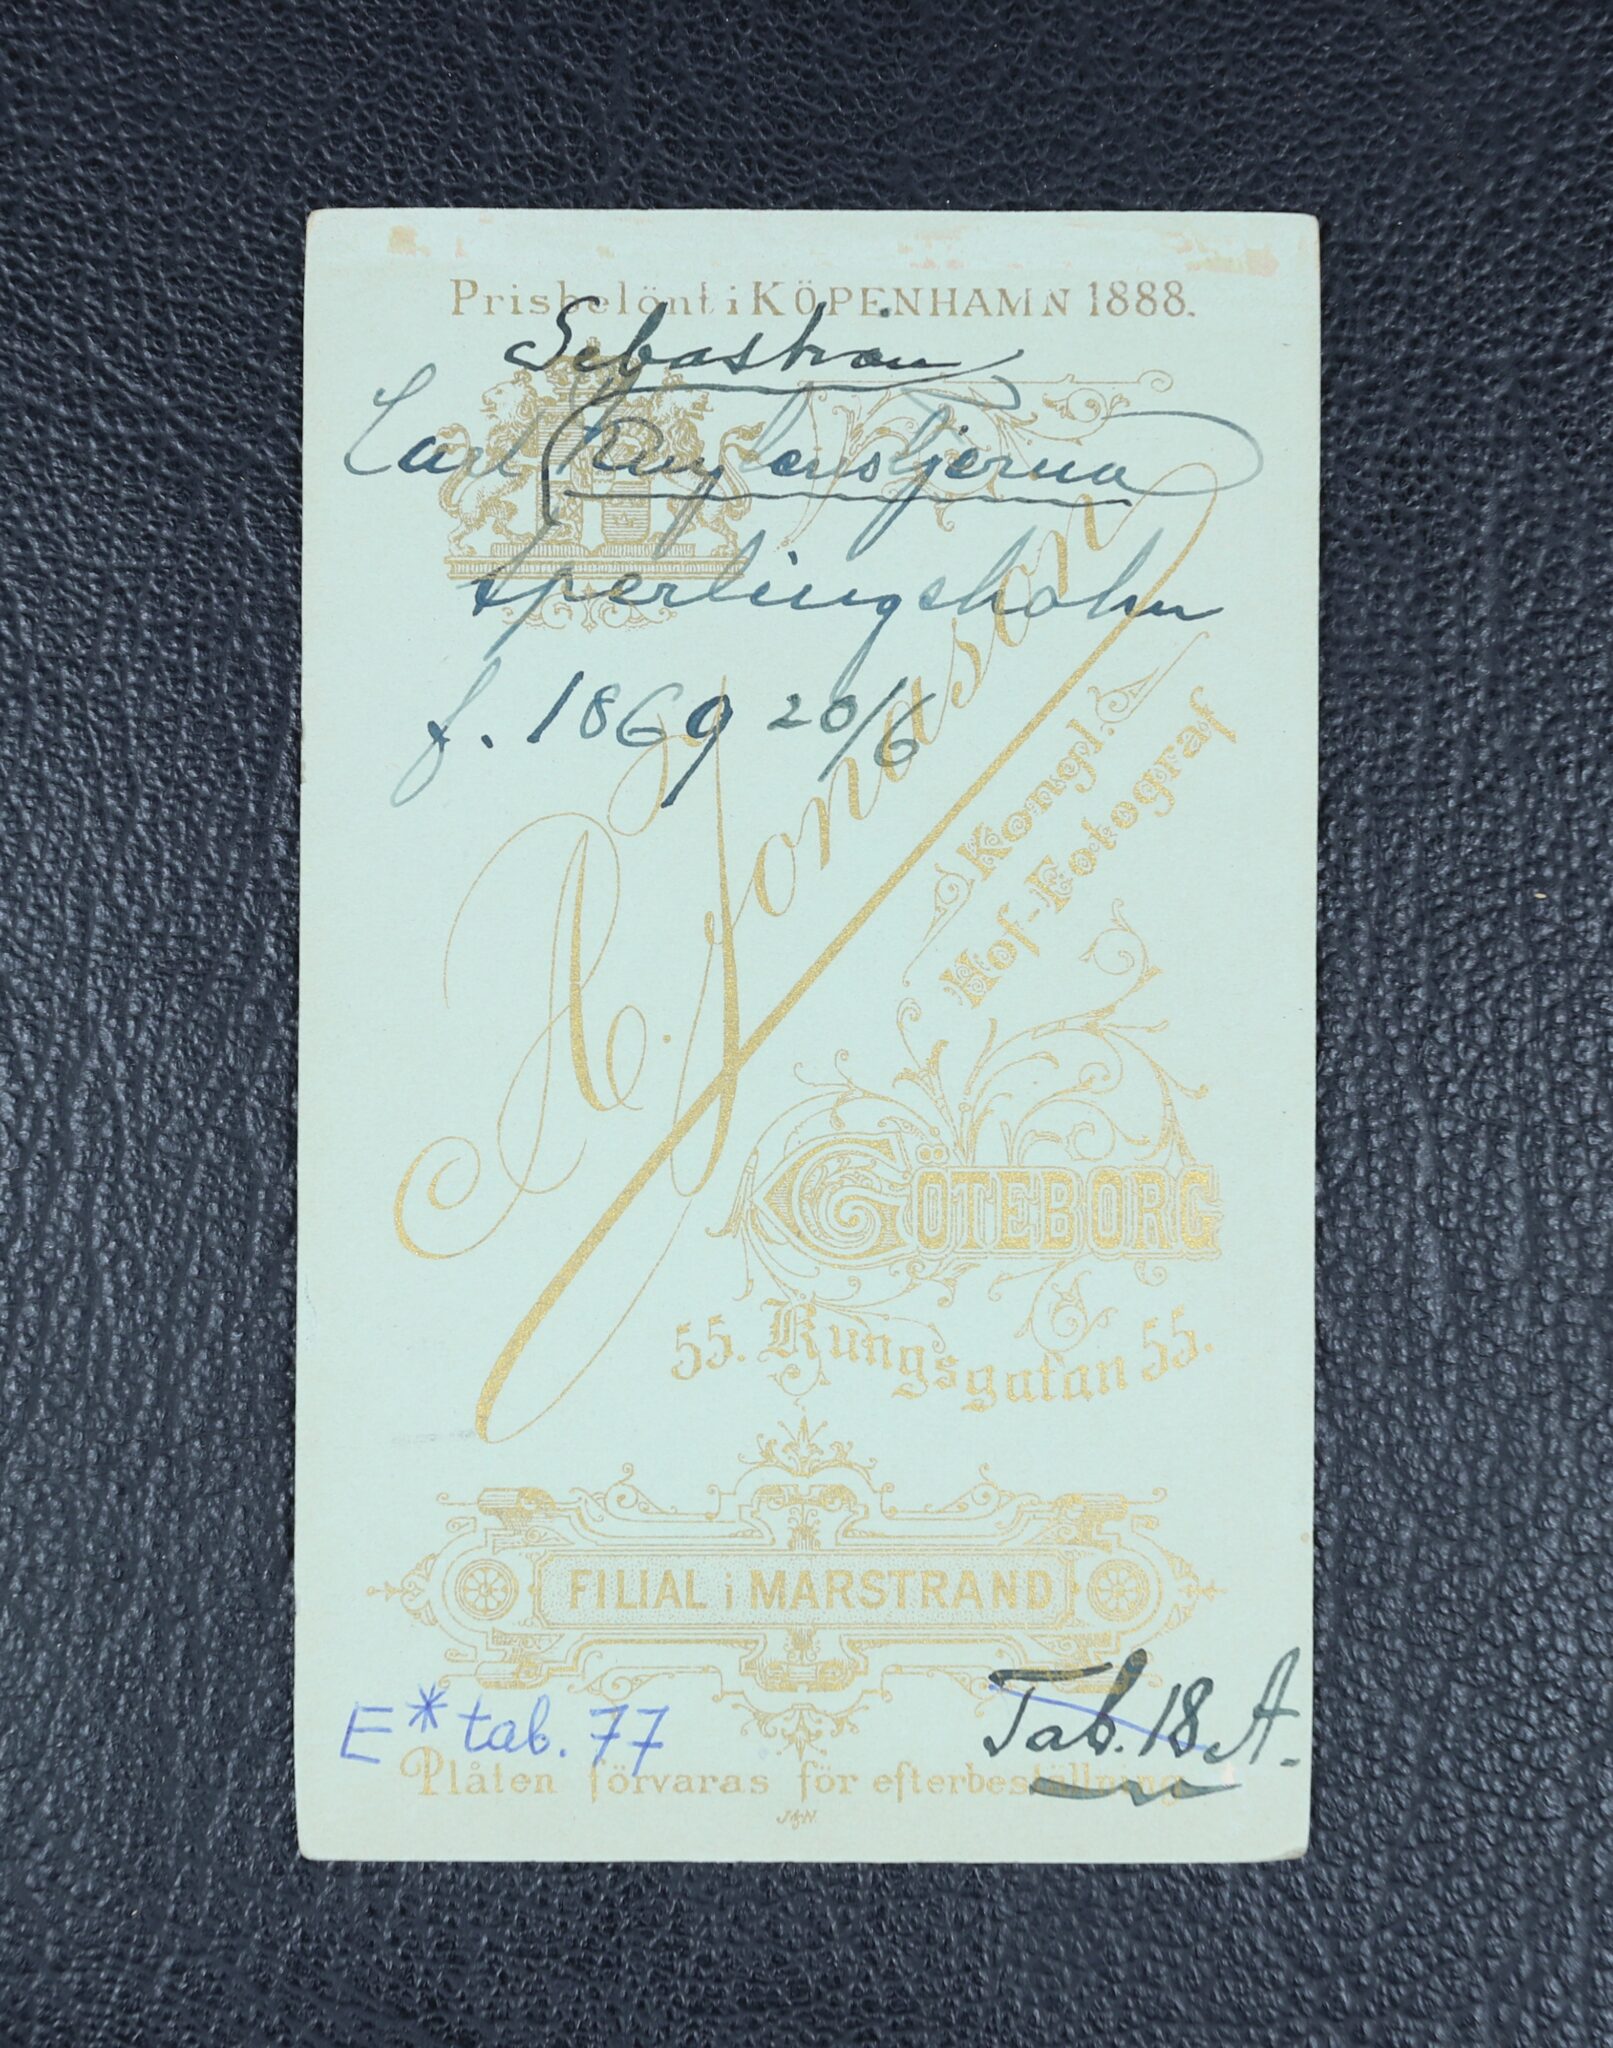 Prisbelönt i KÖPENHAMN 1888.
Sebastian
Carl (Kuylenstjerna
Sperlingsholm
f. 1869 20/6
A. Jonason
Kongl.
Hof-Fotograf
GÖTEBORG
55. Kungsgatan 55.
FILIAL i MARSTRAND
E* tab. 77
Tab. 18 A.
Plåten förvaras för efterbeställning
J&N